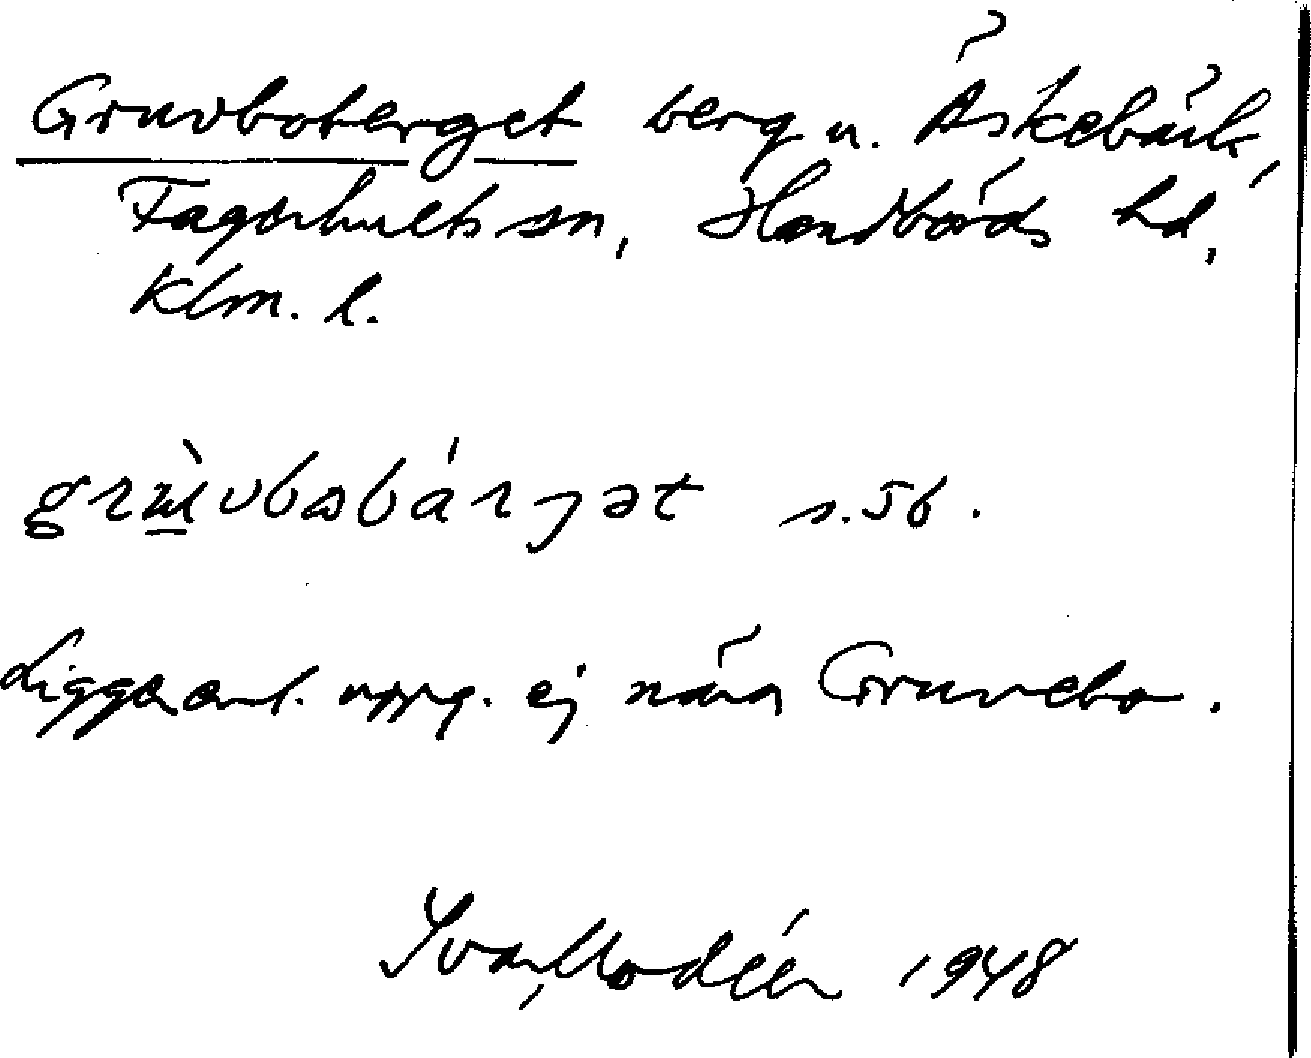 Gruvboberget berg u. Äskebäck,
Fagerhults sn, Handbörds hd,
Klm. l.
grɯ̀vbobárjət s.56.
Ligger enl. uppg. ej nära Gruvebo.
Ivar Modéer 1948